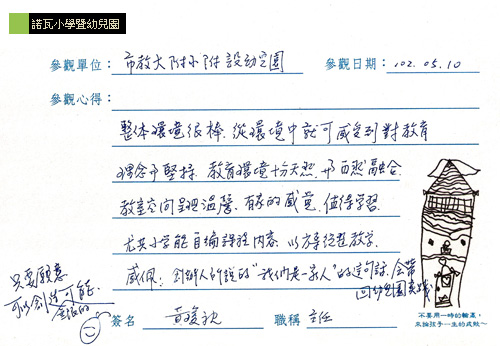 諾瓦小學暨幼兒園
參觀單位：市教大附小附設幼兒園 參觀日期：102.05.10
參觀心得：
整体環境很棒．從環境中就可感受到對教育
理念的堅持．教育環境十分天然．與自然融合．
教室空間呈現溫馨．有家的感覺．值得學習．
尤其小學能自編課程內容．以方案統整教學．
感佩．創辦人所說的"我們是一家人"的這句話．會帶
回幼兒園
只要願意
可以創造可能．
簽名 職稱 主任
不要用一時的輸贏，
來論孩子一生的成敗～